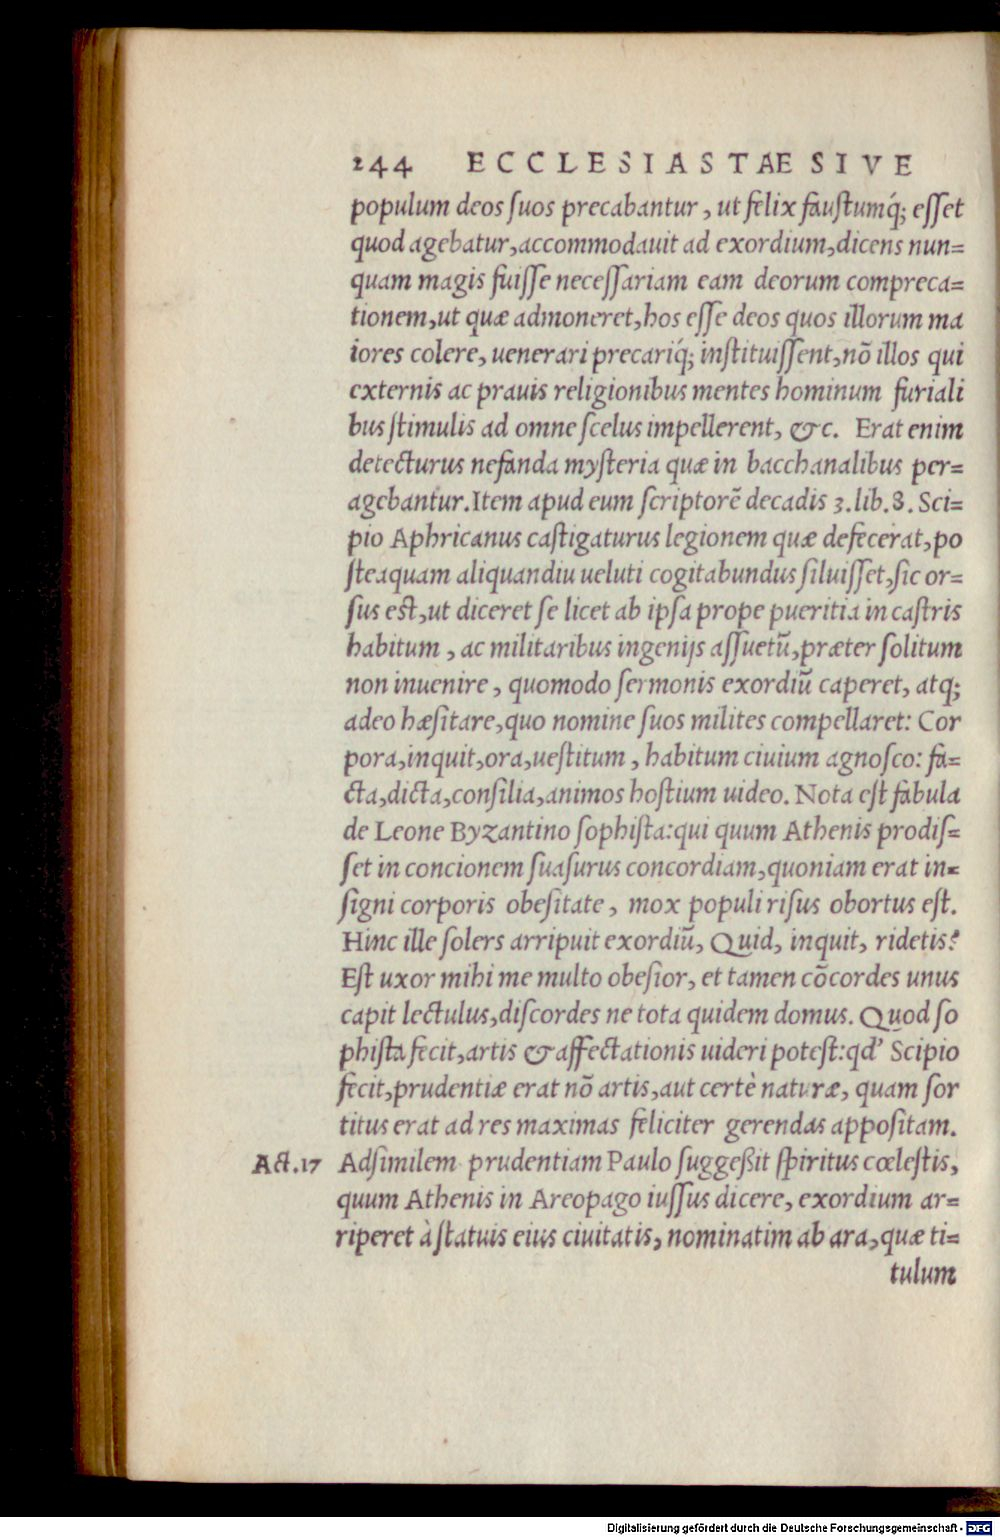 244 ECCLESIASTAE SIVE
populum deos ſuos precabantur, ut felix fauſtumq́; eſſet
quod agebatur, accommodauit ad exordium, dicens nun=
quam magis fuiſſe neceſſariam eam deorum compreca=
tionem, ut quæ admoneret, hos eſſe deos quos illorum ma
iores colere, uenerari precariq́; inſtituiſſent, nõ illos qui
externis ac prauis religionibus mentes hominum furiali
bus ſtimulis ad omne ſcelus impellerent, &c. Erat enim
detecturus nefanda myſteria quæ in bacchanalibus per=
agebantur. Item apud eum ſcriptorẽ decadis 3. lib. 8. Sci=
pio Aphricanus caſtigaturus legionem quæ defecerat, po
ſteaquam aliquandiu ueluti cogitabundus ſiluiſſet, ſic or=
ſus eſt, ut diceret ſe licet ab ipſa prope pueritia in caſtris
habitum, ac militaribus ingenijs aſſuetũ, præter ſolitum
non inuenire, quomodo ſermonis exordiũ caperet, atq;
adeo hæſitare, quo nomine ſuos milites compellaret: Cor
pora, inquit, ora, ueſtitum, habitum ciuium agnoſco: fa=
cta, dicta, conſilia, animos hoſtium uideo. Nota eſt fabula
de Leone Byzantino ſophiſta: qui quum Athenis prodiſ=
ſet in concionem ſuaſurus concordiam, quoniam erat in=
ſigni corporis obeſitate, mox populi riſus obortus eſt.
Hinc ille ſolers arripuit exordiũ, Quid, inquit, ridetis?
Eſt uxor mihi me multo obeſior, et tamen cõcordes unus
capit lectulus, diſcordes ne tota quidem domus. Quod ſo
phiſta fecit, artis & affectationis uideri poteſt: qd' Scipio
fecit, prudentiæ erat nõ artis, aut certè naturæ, quam ſor
titus erat ad res maximas feliciter gerendas appoſitam.
Act. 17 Adſimilem prudentiam Paulo ſuggeßit ſpiritus cœleſtis,
quum Athenis in Areopago iuſſus dicere, exordium ar=
riperet à ſtatuis eius ciuitatis, nominatim ab ara, quæ ti=
tulum
Digitalisierung gefördert durch die Deutsche Forschungsgemeinschaft - DFG